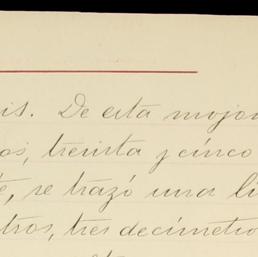 is. De esta mojon
os, treinta y cinco
e, se trazó una li
tros, tres decimetro